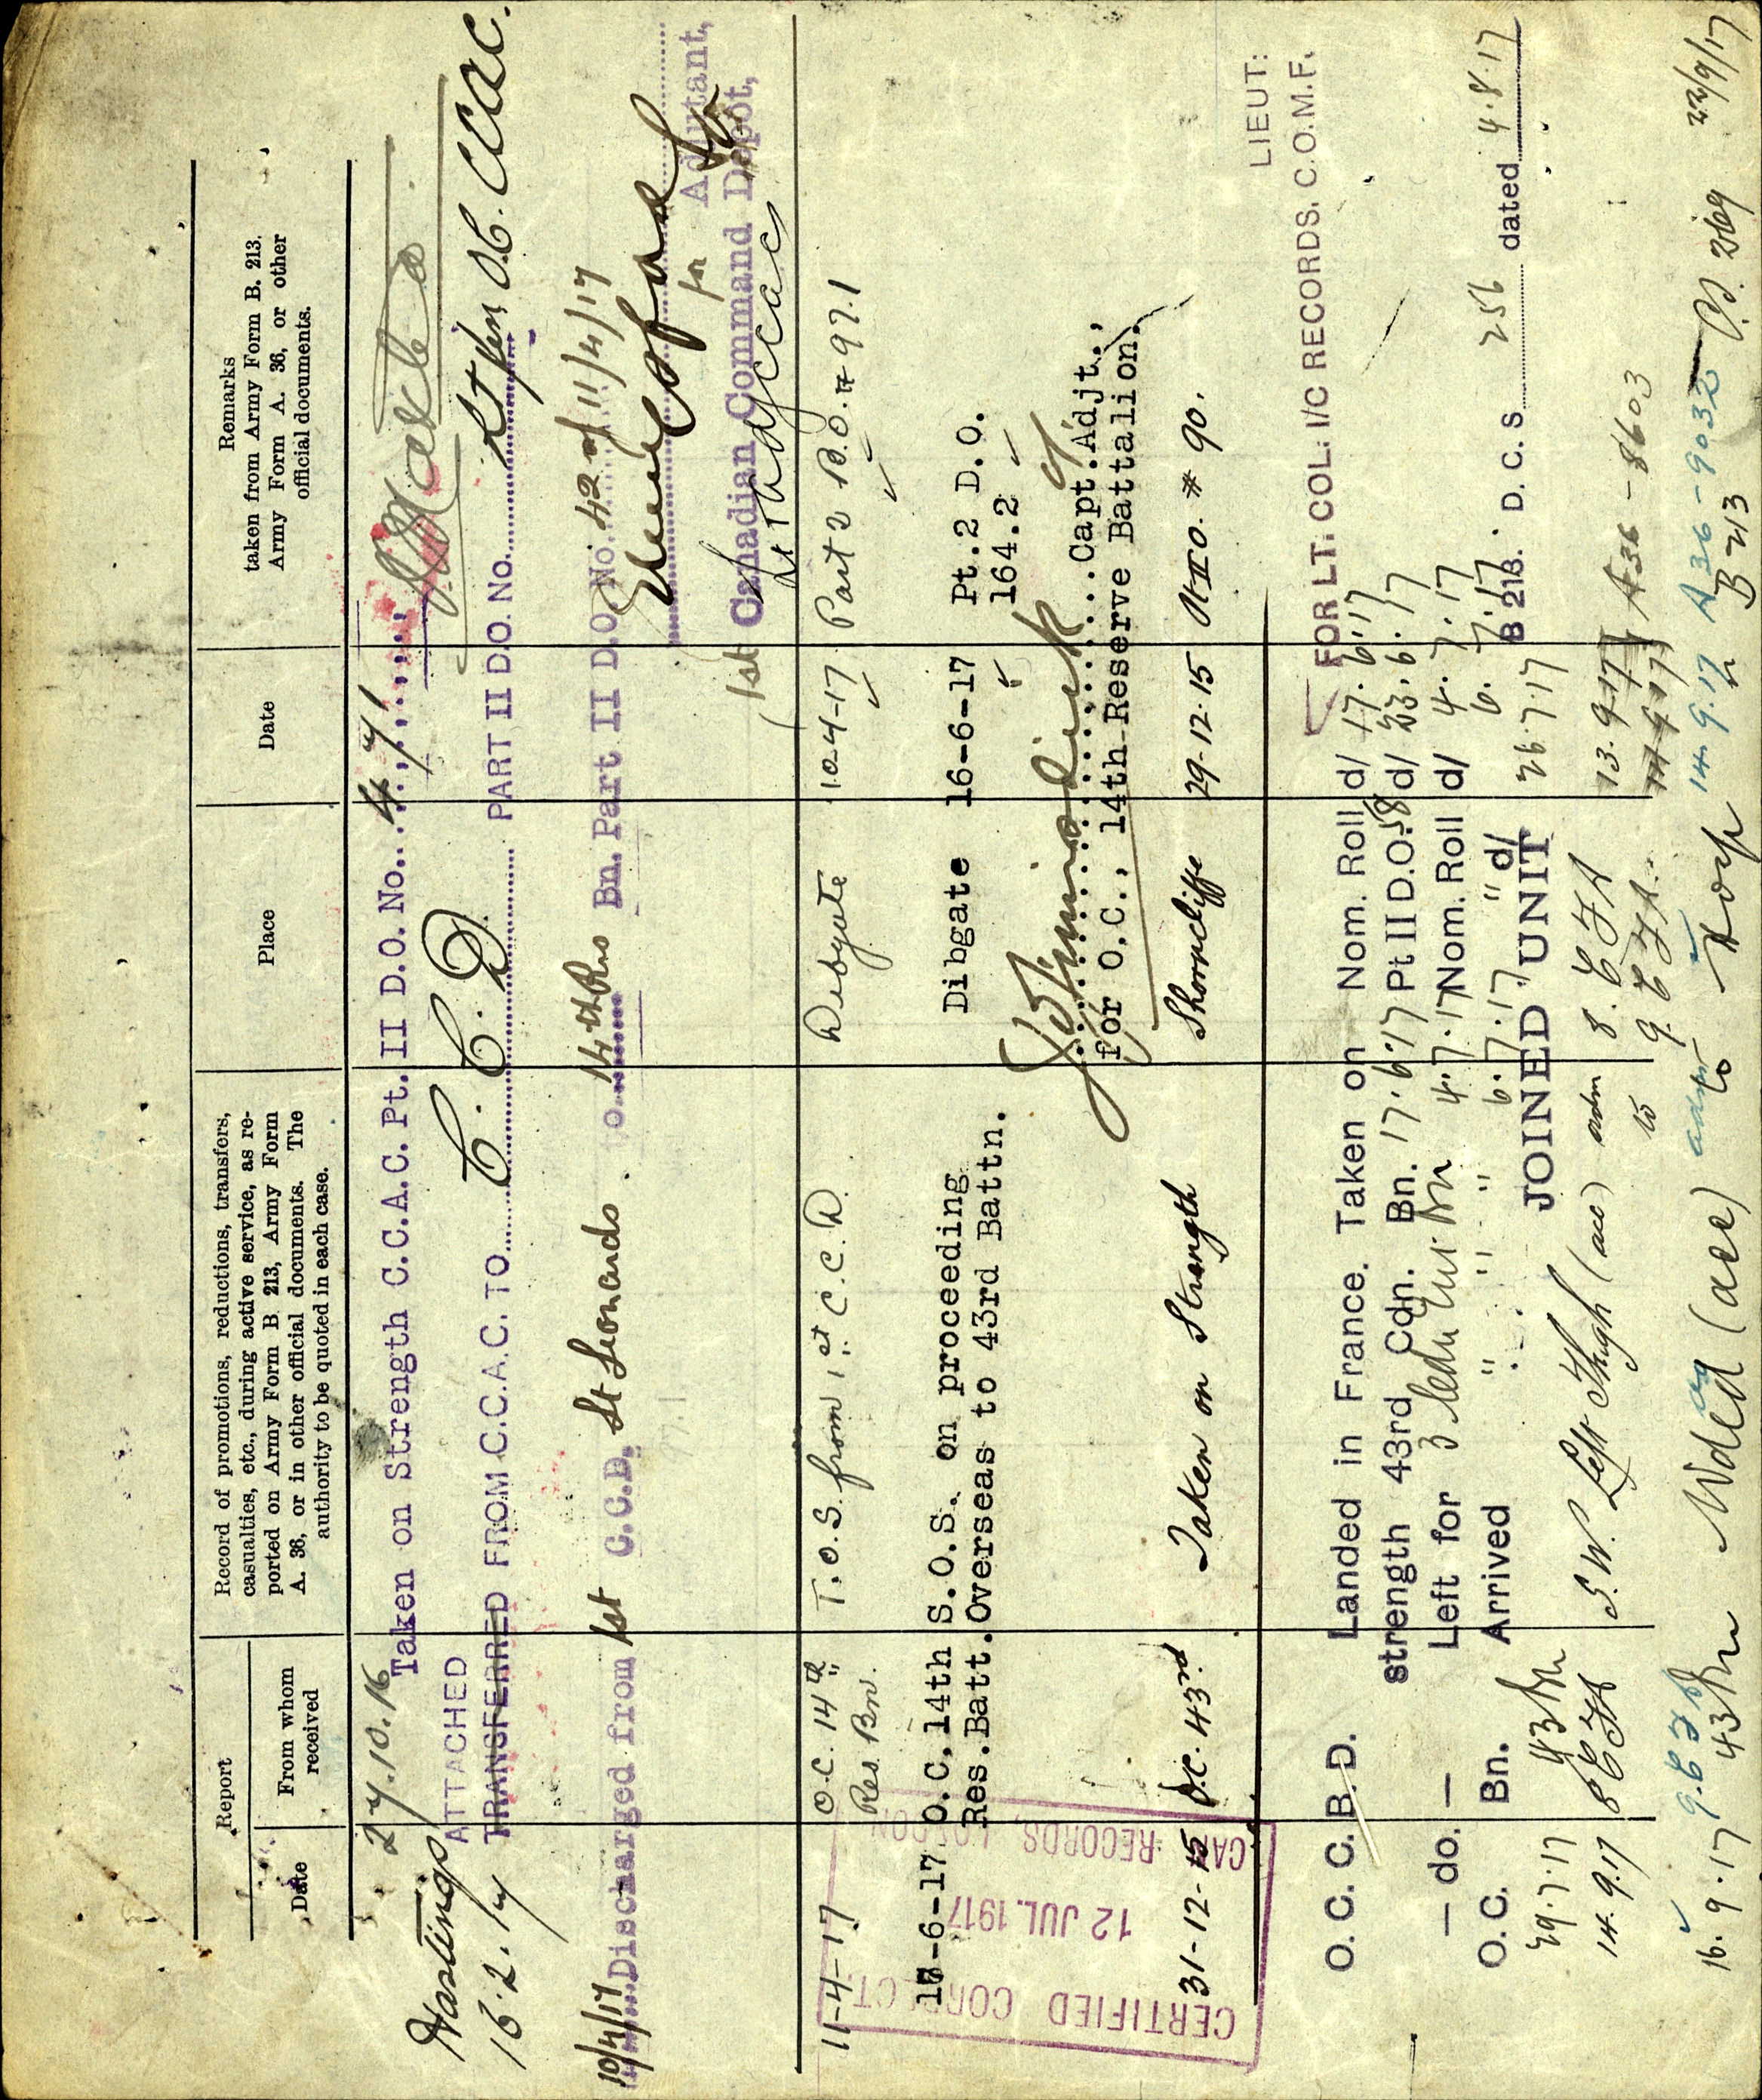 Report
Date
From whom
received
Record of promotions, reductions, transfers,
casualties, etc., during active service, as re-
ported on Army Form B 213, Army Form
A. 36, or in other official documents. The
authority to be quoted in each case.
Place
Date
Remarks
taken from Army Form B. 213,
Army Form A. 36, or other
official documents.
27.10.16
Taken on Strength C.C.A.C. Pt. II D.O. No.
Hastings
16.2.17
ATTACHED
TRANSFERRED FROM C.C.A.C. TO C.C.D. PART II D.O. No.
10/4/17 Discharged from 1st C.C.D. St Leonards to 14th Res Bn. Part II D.O. No. 42 of 11/4/17
for Adjutant,
1st Canadian Command Depot,
11-4-17 O.C. 14th Res. Bn. T.O.S. from 1st C.C.D. Dibgate 10-4-17 Part 2 D.O. # 97.1
16-6-17 O.C, 14th S.O.S. on proceeding Dibgate 16-6-17 Pt.2 D.O.
Res.Batt. Overseas to 43rd Battn. 164.2
Capt. Adjt.,
for O.C., 14th Reserve Battalion.
31-12-15 O.C. 43rd Taken on Strength Shorncliffe 29-12-15 Pt II O. # 90.
CERTIFIED CORRECT
12 JUL. 1917
CAN. RECORDS, LONDON
LIEUT:
FOR LT. COL: I/C RECORDS. C.O.M.F.
O. C. C. B. D. Landed in France. Taken on Nom. Roll d/ 17.6.17
strength 43rd Cdn. Bn. 17.6.17 Pt II D.O. 58 d/ 23.6.17
— do. — Left for 3 4.7.17 Nom. Roll d/ 4.7.17
O. C. Bn. Arrived " " " 6.7.17 " d/ 6.7.17
29.7.17 43 Bn JOINED UNIT 26.7.17 B 213. D. C. S 256 dated 4.8.17
14.9.17 8 CFA S.W. Left Thigh (acc) adm 8. CFA 13.9.17 A36 - 8603
to 9. CFA.
16.9.17 9.CFA adm 14.9.17 A36-9032
43 Bn Wded (acc) to Hosp B 213 22/9/17